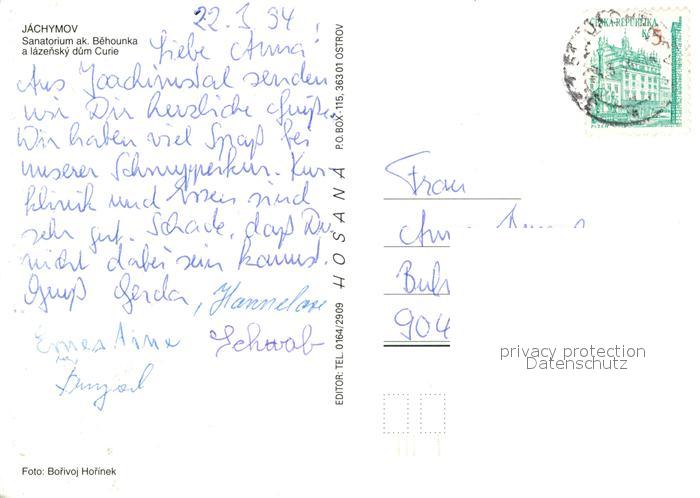 JÁCHYMOV
Sanatorium ak. Běhounka
a lázeňský dům Curie
22.3.94
Liebe Anna!
Aus Joachimstal senden
wir Dir herzliche Grüße.
Wir haben viel Spaß bei
unserer Schnupperkur. Kur-
klinik und Essen sind
sehr gut. Schade, daß Du
nicht dabei sein kannst.
Gruß Gerda, Hannelore
Ernestine Schwab
Foto: Bořivoj Hořínek
EDITOR: TEL. 0164/2909 HOSANA P.O.BOX - 115, 363 01 OSTROV
ČESKÁ REPUBLIKA
5
Kč
PLZEŇ
Frau
904
privacy protection
Datenschutz